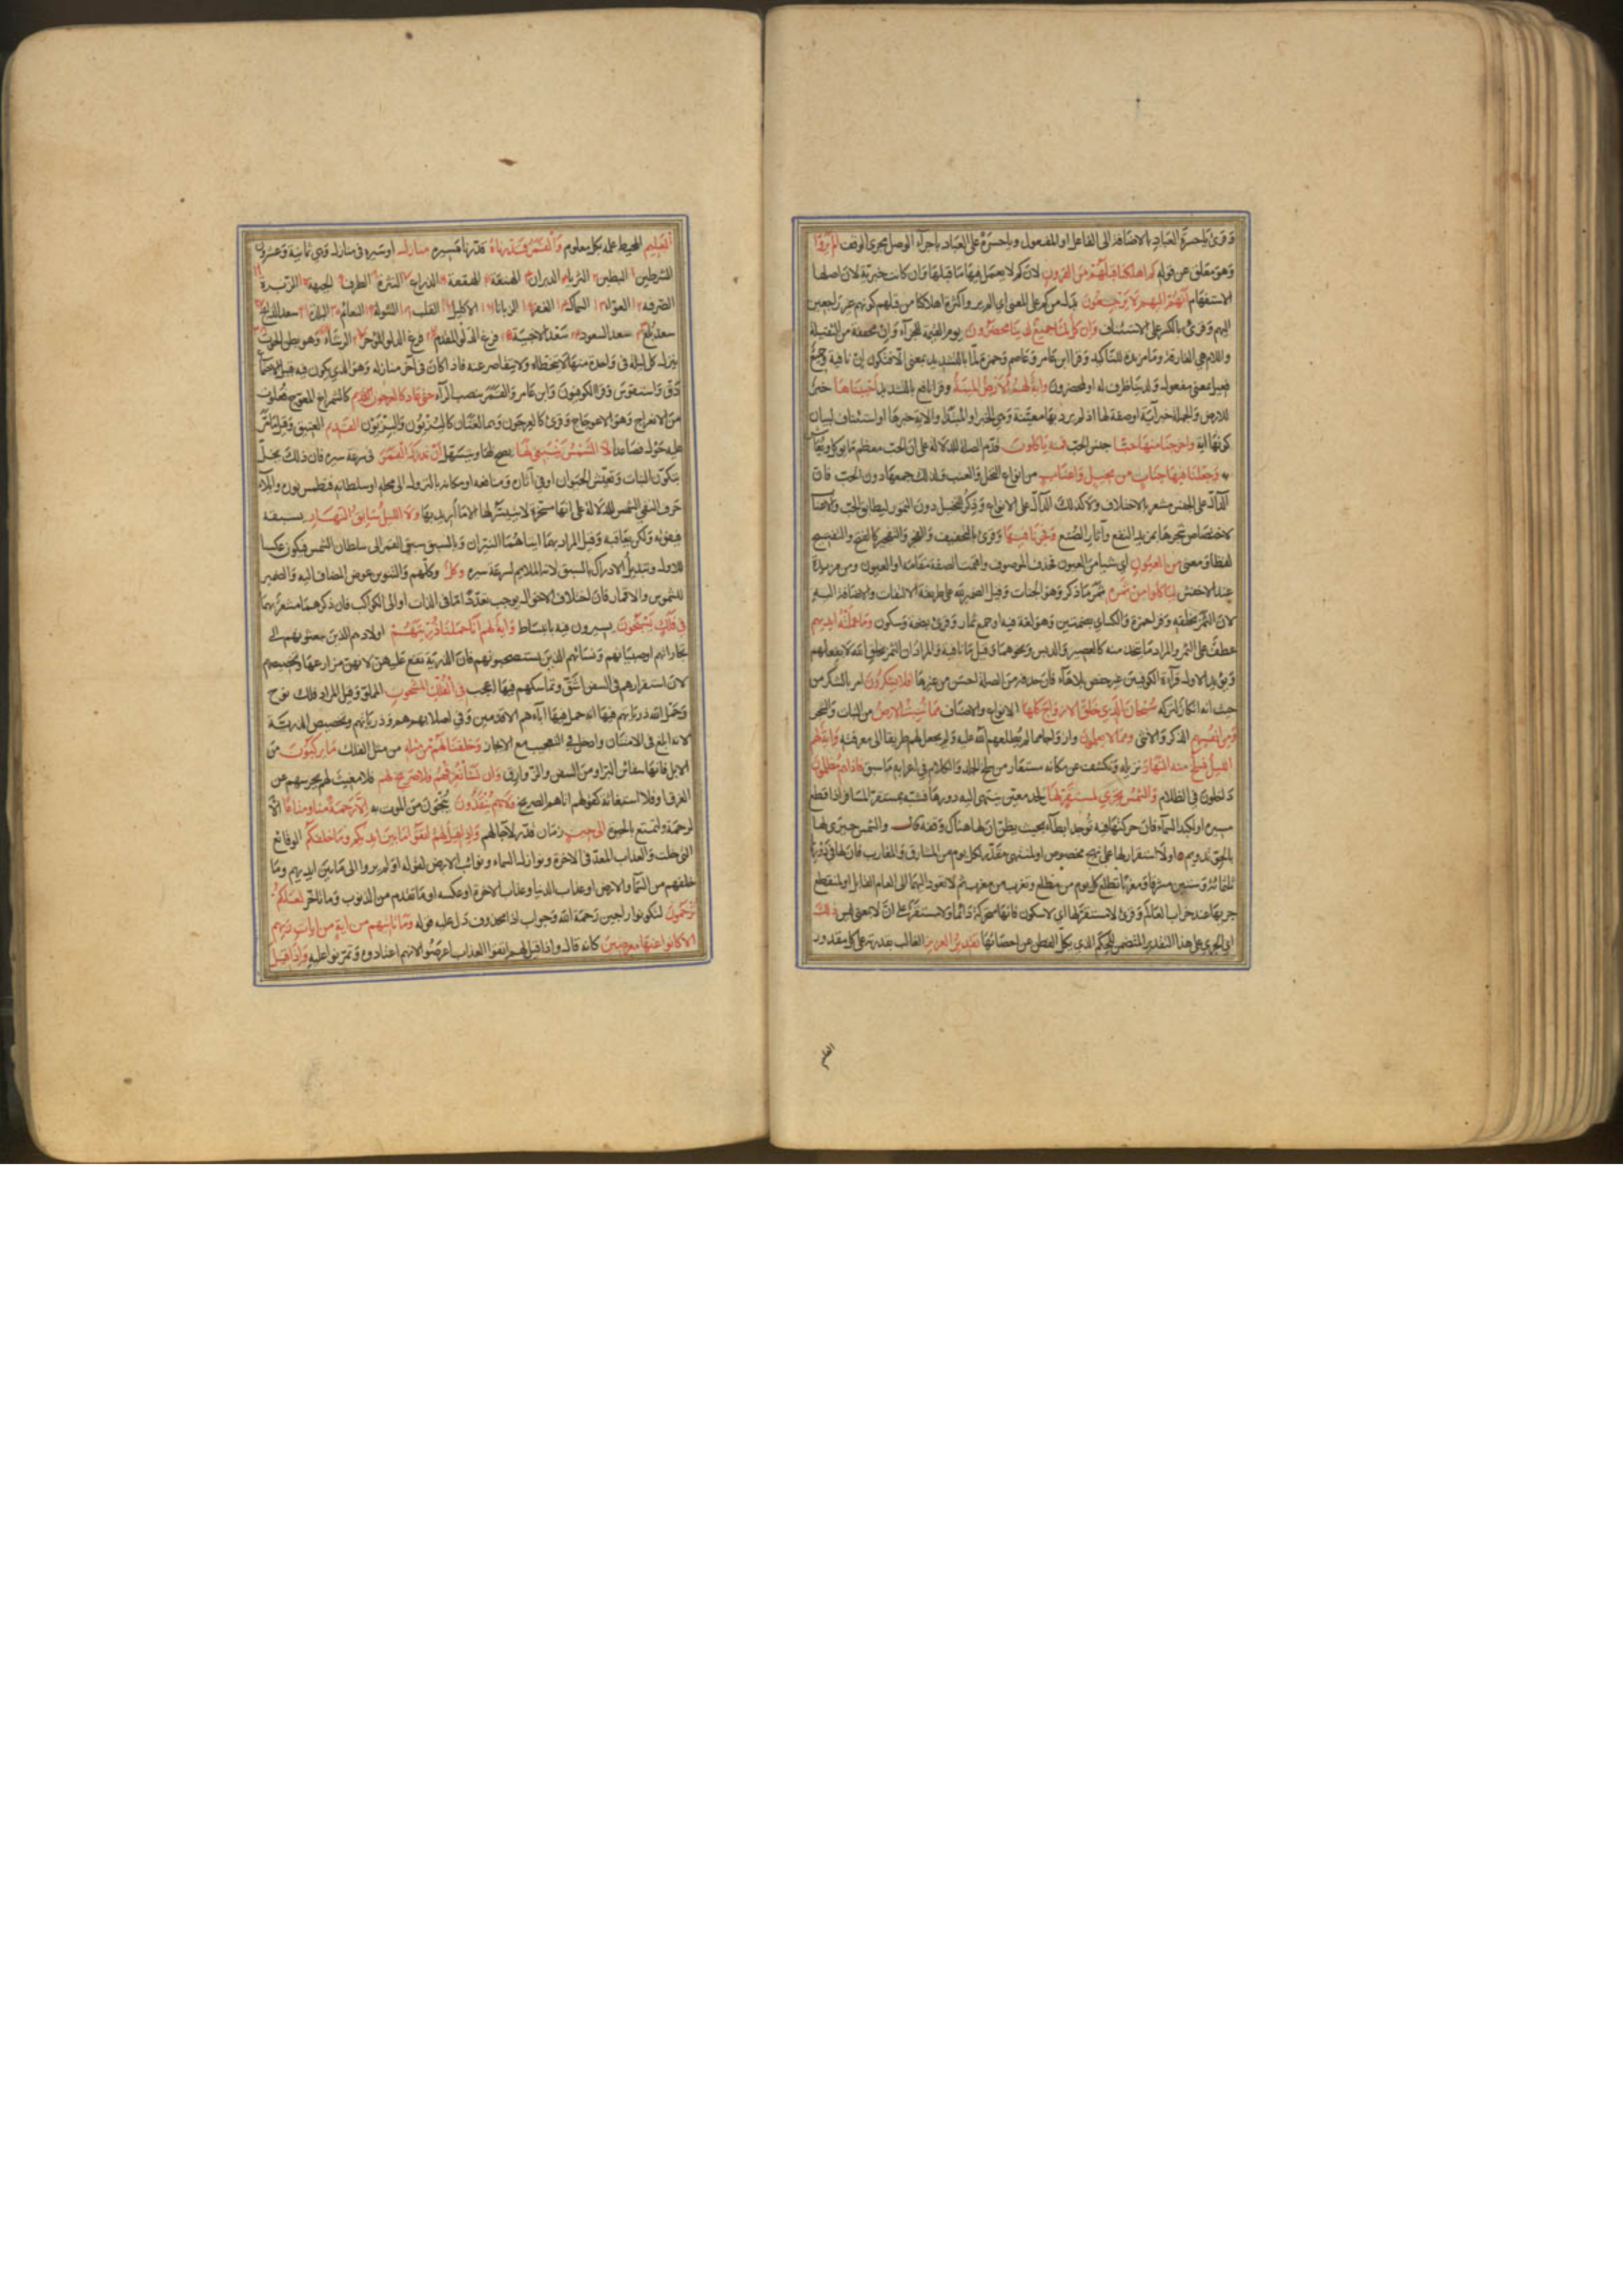 وقرئ يا حسرة العباد بالاضافة الى الفاعل او المفعول ويا حسره على العباد باجراء الوصل مجرى الوقف الم يروا
وهو معلق عن قوله كم اهلكنا قبلهم من القرون لان كم لا يعمل فيها ما قبلها وان كانت خبرية لان اصلها
الاستفهام انهم اليهم لا يرجعون بدل من كم على المعنى اى الم يروا كثرة اهلاكنا من قبلهم كونهم غير راجعين
اليهم وقرئ بالكسر على الاستئناف وان كل لما جميع لدينا محضرون يوم القيمة للجزاء وان مخففة من الثقيلة
واللام هي الفارقة وما مزيدة للتاكيد وقرا ابن عامر وعاصم وحمزة لما بالتشديد بمعنى الا فتكون ان نافية وجميع
فعيل بمعنى مفعول ولدينا ظرف له او لمحضرون واية لهم الارض الميتة وقرا نافع بالتشديد احييناها خبر
للارض والجملة خبر اية او صفة لها اذ لم يرد بها معينة وهي الخبر او المبتدا والاية خبرها او استئناف لبيان
كونها اية واخرجنا منها حبا جنس الحب فمنه ياكلون قدم الصلة للدلالة على ان الحب معظم ما يوكل ويعاش
به وجعلنا فيها جنات من نخيل واعناب من انواع النخل والعنب ولذلك جمعها دون الحب فان
الدال على الجنس مشعر بالاختلاف ولا كذلك الدال على الانواع وذكر النخيل دون التمور ليطابق الحب والاعناب
لاختصاص شجرها بمزيد النفع وآثار الصنع وفجرنا فيها وقرئ بالتخفيف والفجر والتفجير كالفتح والتفتيح
لفظا ومعنى من العيون اى شيا من العيون فحذف الموصوف واقيمت الصفة مقامه او العيون ومن مزيدة
عند الاخفش ليأكلوا من ثمره ثمر ما ذكر وهو الجنات وقيل الضمير لله على طريقة الالتفات والاضافة اليه
لان الثمر بخلقه وقرا حمزة والكساي بضمتين وهو لغة فيه او جمع ثمار وقرئ بضمة وسكون وما عملته ايديهم
عطف على الثمر والمراد ما يتخذ منه كالعصير والدبس ونحوهما وقيل ما نافية والمراد ان الثمر بخلق الله لا بفعلهم
ويؤيد الاول قراءة الكوفيين غير حفص بلا هاء فان حذفه من الصلة احسن من غيرها افلا يشكرون امر بالشكر من
حيث انه انكار لتركه سبحان الذي خلق الازواج كلها الانواع والاصناف مما تنبت الارض من النبات والشجر
ومن انفسهم الذكر والانثى ومما لا يعلمون وازواجا مما لم يطلعهم الله عليه ولم يجعل لهم طريقا الى معرفته واية لهم
الليل نسلخ منه النهار نزيله ونكشفه عن مكانه مستعار من سلخ الجلد والكلام في اعرابه ما سبق فاذا هم مظلمون
داخلون في الظلام والشمس تجري لمستقر لها لحد معين ينتهي اليه دورها فشبه بمستقر المسافر اذا قطع
مسيره او لكبد السماء فان حركتها فيه توجد ابطاء بحيث يظن ان لها هناك وقفة قال والشمس حيرى لها
بالجو تدويم او لاستقرار لها على نهج مخصوص او لمنتهى مقدر لكل يوم من المشارق والمغارب فان لها في دورها
ثلثمائة وستين مشرقا ومغربا تطلع كل يوم من مطلع وتغرب من مغرب ثم لا تعود اليهما الى العام القابل او لمنقطع
جريها عند خراب العالم وقرئ لا مستقر لها اى لا سكون فانها متحركة دائما ولا مستقر على ان لا بمعنى ليس ذلك
اى الجرى على هذا التقدير المتضمن للحكم الذي يكل الفطن عن احصائها تقدير العزيز الغالب بقدرته على كل مقدور
العليم
العليم المحيط علمه بكل معلوم والقمر قدرناه قدرنا مسيره منازل او سيره في منازل وهي ثمانية وعشرون
الشرطين البطين الثريا الدبران الهقعة الهنعة الذراع النثرة الطرف الجبهة الزبرة
الصرفة العوا السماك الغفر الزبانا الاكليل القلب الشولة النعائم البلدة سعد الذابح
سعد بلع سعد السعود سعد الاخبية فرغ الدلو المقدم فرغ الدلو المؤخر الرشاء وهو بطن الحوت
ينزل كل ليلة في واحدة منها لا يتخطاه ولا يتقاصر عنه فاذا كان في آخر منازله وهو الذي يكون فيه قبل الاجتماع
دق واستقوس وقرا الكوفيون وابن عامر والقمر بنصب الراء حتى عاد كالعرجون كالشمراخ المعوج فعلون
من الانعراج وهو الاعوجاج وقرئ كالعرجون وهما لغتان كالبزيون والبزيون القديم العتيق وقيل ما مر
عليه حول فصاعدا لا الشمس ينبغي لها يصح لها ويتسهل ان تدرك القمر في سرعة سيره فان ذلك يخل
بتكون النبات وتعيش الحيوان او في آثاره ومنافعه او مكانه بالنزول الى محله او سلطانه فتطمس نوره وايلاء
حرف النفي الشمس للدلالة على انها مسخرة لا يتيسر لها الا ما اريد بها ولا الليل سابق النهار يسبقه
فيفوته ولكن يعاقبه وقيل المراد بهما آيتاهما النيران وبالسبق سبق القمر الى سلطان الشمس فيكون عكسا
للاول وتبديل الادراك بالسبق لانه الملايم لسرعة سيره وكل وكلهم والتنوين عوض المضاف اليه والضمير
للشموس والاقمار فان اختلاف الاحوال يوجب تعددا ما في الذات او الى الكواكب فان ذكرهما مشعر بها
في فلك يسبحون يسيرون فيه بانبساط واية لهم انا حملنا ذريتهم اولادهم الذين يبعثونهم الى
تجاراتهم او صبيانهم ونسائهم الذين يستصحبونهم فان الذرية تقع عليهن لانهن مزارعها وتخصيصهم
لان استقرارهم في السفن اشق وتماسكهم فيها اعجب في الفلك المشحون المملو وقيل المراد فلك نوح
وحمل الله ذرياتهم فيها انه حمل فيها آباءهم الاقدمين وفي اصلابهم هم وذرياتهم وتخصيص الذرية
لانه ابلغ في الامتنان وادخل في التعجيب مع الايجاز وخلقنا لهم من مثله من مثل الفلك ما يركبون من
الابل فانها سفائن البر او من السفن والزوارق وان نشا نغرقهم فلا صريخ لهم فلا مغيث لهم يحرسهم عن
الغرق او فلا استغاثة كقولهم اتاهم الصريخ ولا هم ينقذون ينجون من الموت به الا رحمة منا ومتاعا الا
لرحمة ولتمتيع بالحيوة الى حين زمان قدر لآجالهم واذا قيل لهم اتقوا ما بين ايديكم وما خلفكم الوقائع
التي خلت والعذاب المعد في الآخرة ونوازل السماء ونوائب الارض لقوله اولم يروا الى ما بين ايديهم وما
خلفهم من السماء والارض او عذاب الدنيا وعذاب الاخرة او عكسه او ما تقدم من الذنوب وما تاخر لعلكم
ترحمون لتكونوا راجين رحمة الله وجواب اذا محذوف دل عليه قوله وما تاتيهم من اية من ايات ربهم
الا كانوا عنها معرضين كانه قال واذا قيل لهم اتقوا العذاب اعرضوا لانهم اعتادوه وتمرنوا عليه واذا قيل